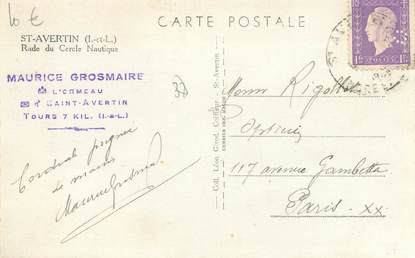 10 €
CARTE POSTALE
ST-AVERTIN (I.-et-L.)
Rade du Cercle Nautique
MAURICE GROSMAIRE
L'ORMEAU
SAINT-AVERTIN
TOURS 7 KIL. (I.-&-L.)
37
Cordiale poignée
de mains
Maurice Grosmaire
Coll. Léon Girod, Coiffeur - St-Avertin
Monsieur Rigollet
Opticien
117 avenue Gambetta
Paris. XX